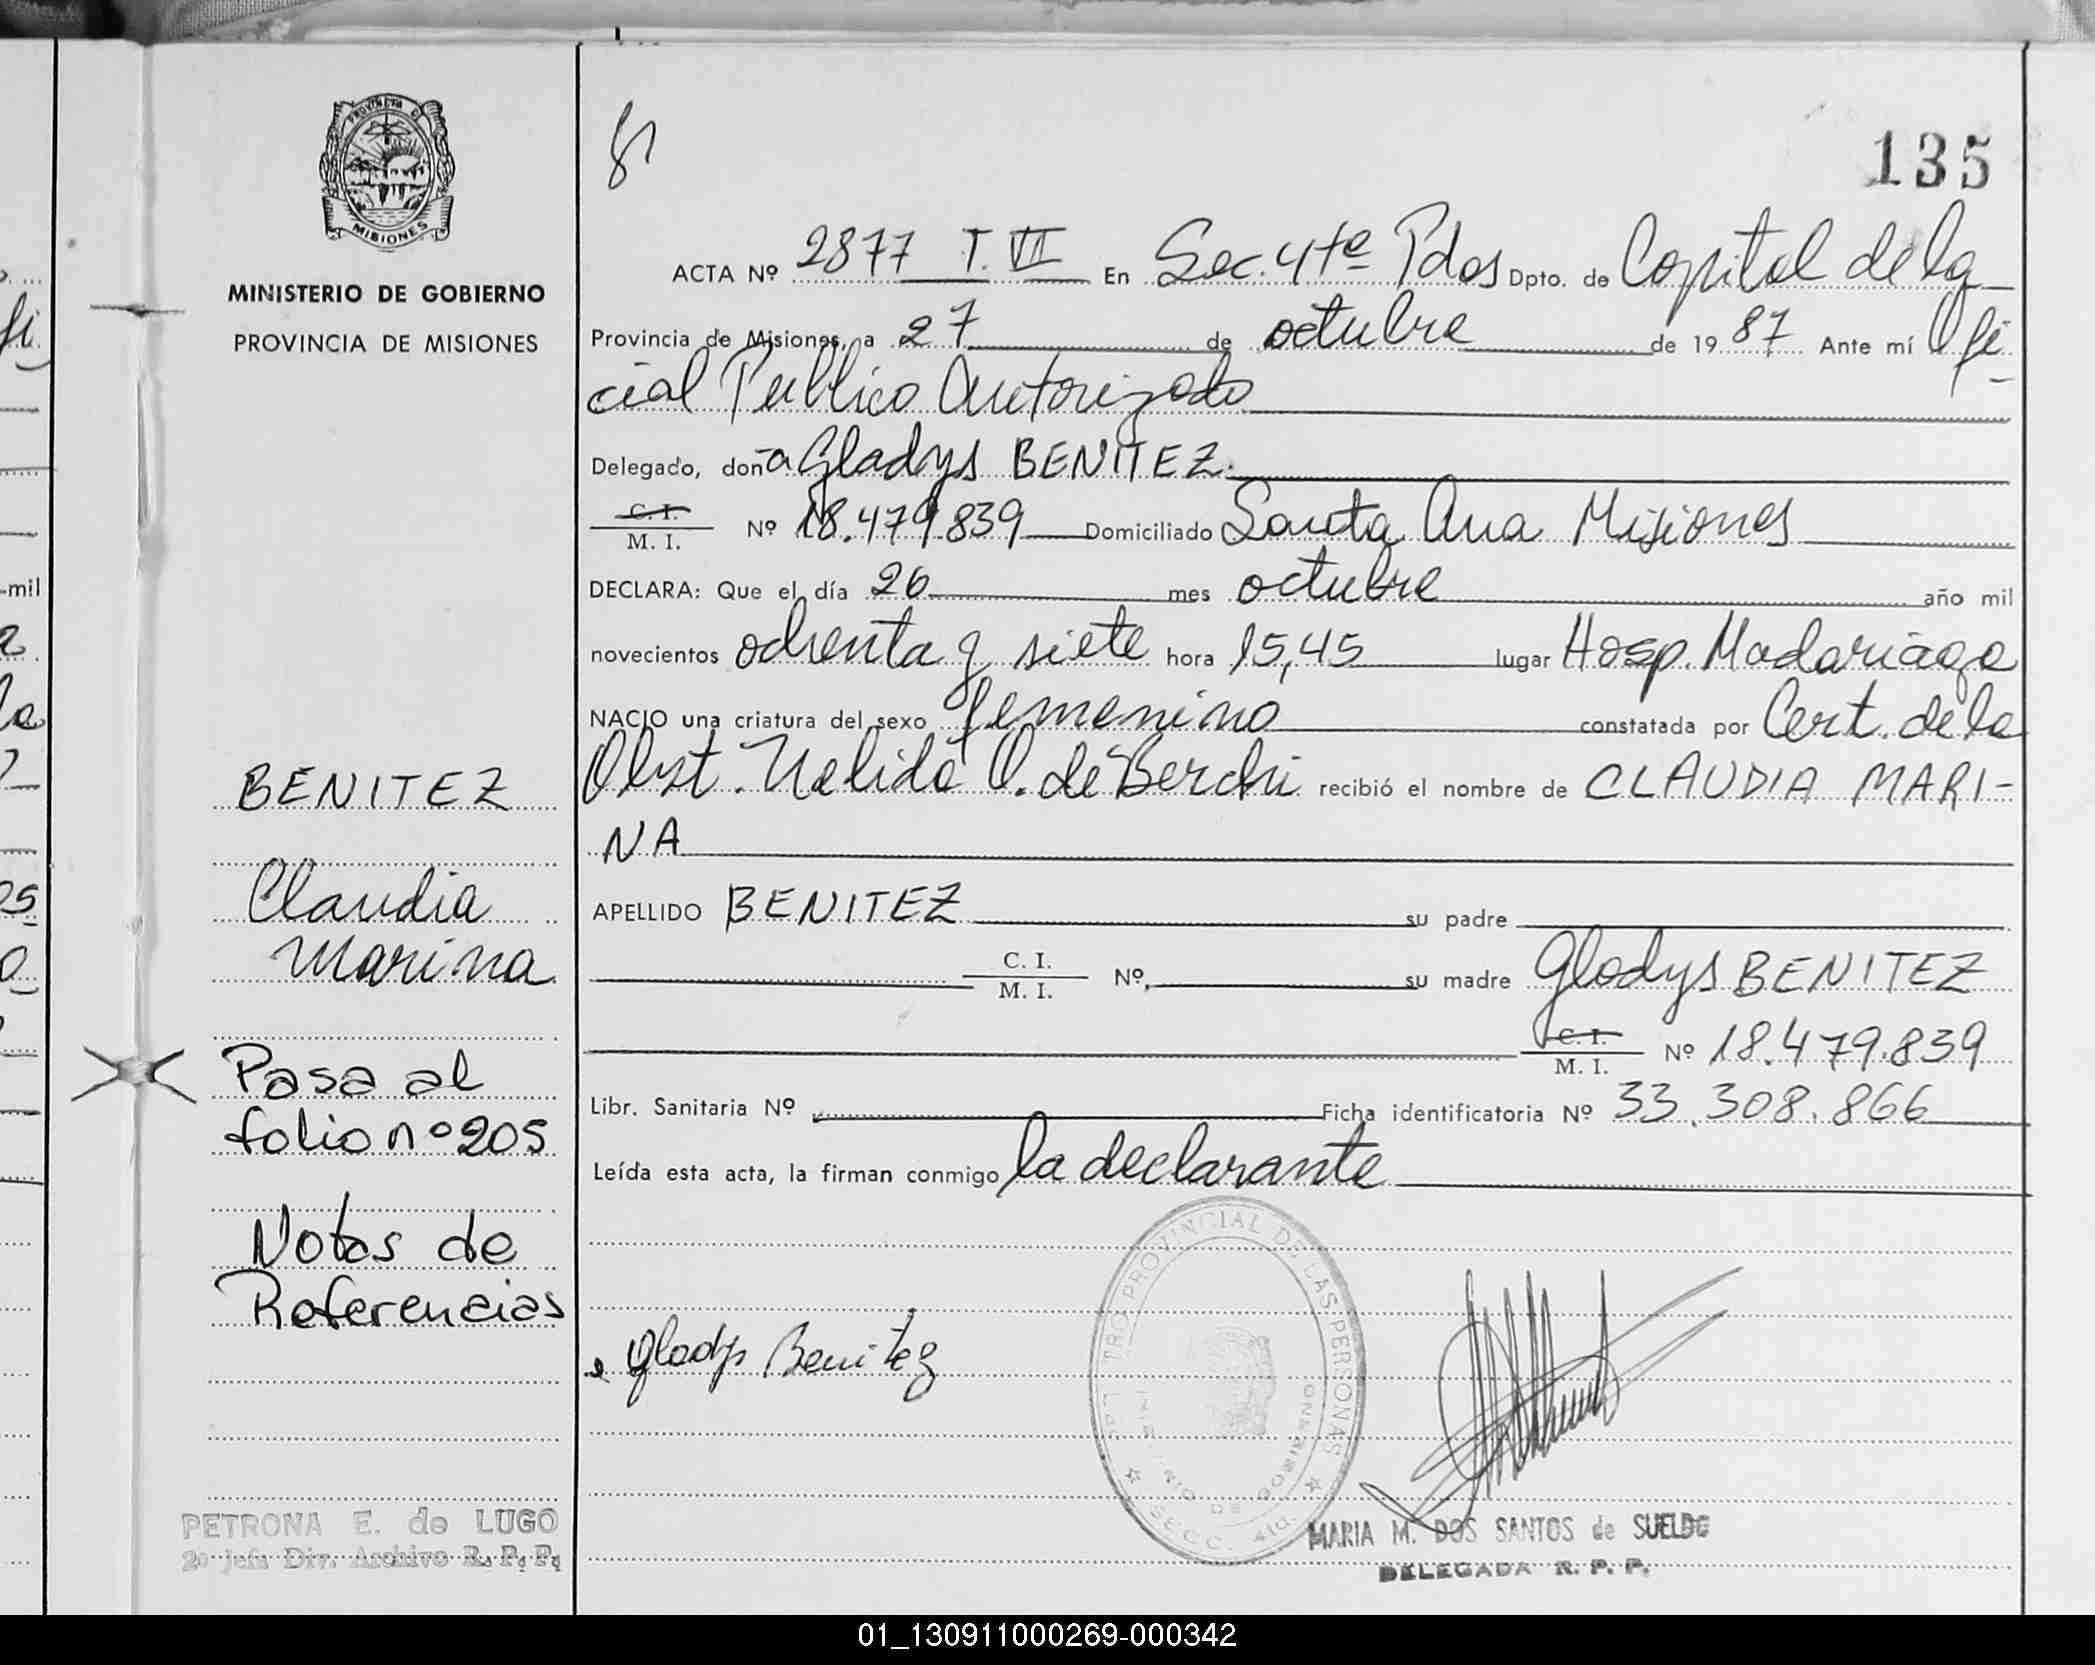 PROVINCIA D
MISIONES
MINISTERIO DE GOBIERNO
PROVINCIA DE MISIONES
BENITEZ
Claudia
Marina
Pasa al
folio nº 205
Notas de
Referencias
PETRONA E. de LUGO
2º Jefa Div. Archivo R. P. P.
135
ACTA Nº 2877 T. VII En Sec. 4ta Pdas Dpto. de Capital de la
Provincia de Misiones, a 27 de octubre de 1987 Ante mí Ofi
cial Publico Autorizado
Delegado, doña Gladys BENITEZ.
C. I.
M. I. Nº 18.479.839 Domiciliado Santa Ana Misiones
DECLARA: Que el día 26 mes octubre año mil
novecientos ochenta y siete hora 15,45 lugar Hosp. Madariaga
NACIO una criatura del sexo femenino constatada por Cert. de la
Obst. Nelida O. de Berchi recibió el nombre de CLAUDIA MARI-
NA
APELLIDO BENITEZ su padre
C. I.
M. I. Nº su madre Gladys BENITEZ
C. I.
M. I. Nº 18.479.839
Libr. Sanitaria Nº Ficha identificatoria Nº 33.308.866
Leída esta acta, la firman conmigo la declarante
Gladys Benitez
TRO PROVINCIAL DE LAS PERSONAS
NIO DE GOBIERNO
SECC. 4ta.
MARIA M. DOS SANTOS de SUELDO
DELEGADA R. P. P.
01_130911000269-000342